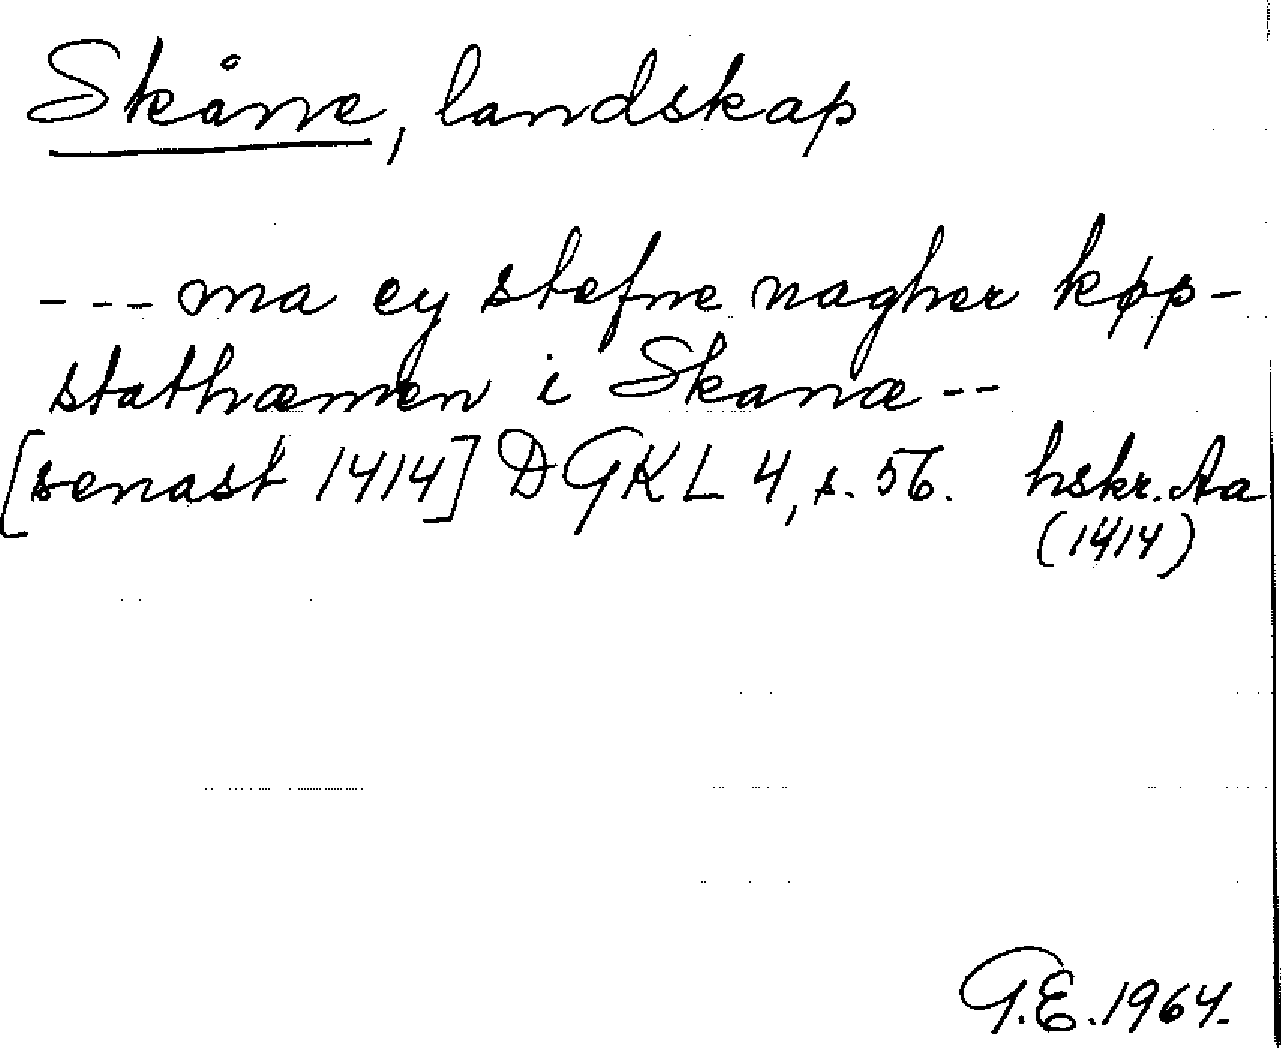 Skåne, landskap
--- ma ey stefne nagher køp-
stathæmen i Skanæ --
[senast 1414] DGKL 4, s. 56. hskr. Aa
(1414)
G.E. 1964.